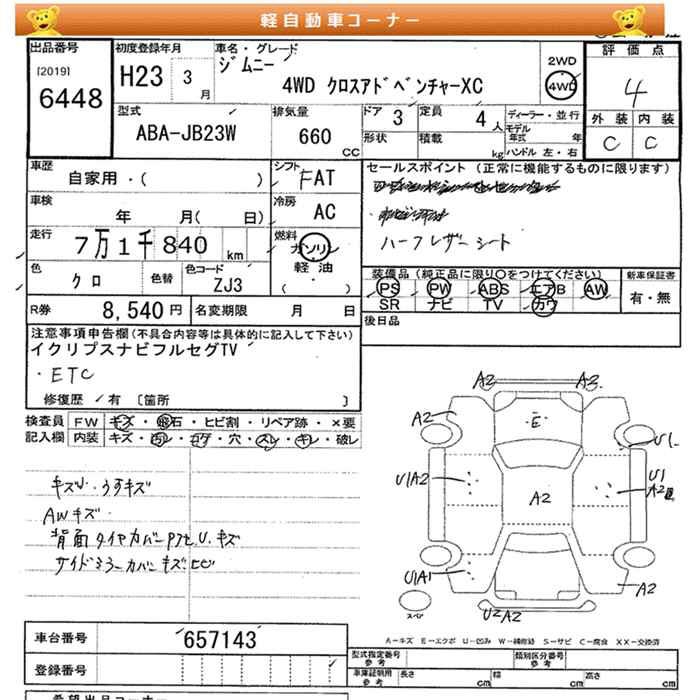 軽自動車コーナー
出品番号
[2019]
6448
初度登録年月
H23 3
月
車名・グレード
ジムニー
4WD クロスアドベンチャーXC
2WD
4WD
評価点
4
外装 内装
C C
型式
ABA-JB23W
排気量
660
CC
ドア 3
形状
定員 4 人
積載 kg
ディーラー・並行
モデル年式 年
ハンドル 左・右
車歴
自家用・( )
シフト
FAT
セールスポイント (正常に機能するものに限ります)
ハーフレザーシート
車検
年 月( 日)
冷房
AC
走行
7万1千840 km
燃料
ガソリン
軽油
( )
色
クロ
色替
色コード
ZJ3
装備品 (純正品に限り○をつけてください)
PS PW ABS エアB AW
SR ナビ TV カワ
新車保証書
有・無
R券 8,540 円
名変期限 月 日
後日品
注意事項申告欄 (不具合内容等は具体的に記入して下さい)
イクリプスナビフルセグTV
・ETC
修復歴 有 〔箇所 〕
検査員
記入欄
FW キズ・飛石・ヒビ割・リペア跡・×要
内装 キズ・汚レ・コゲ・穴・スレ・キレ・破レ
キズU・うすキズ
AWキズ
背面タイヤカバー U.キズ
サイドミラーカバーキズ
A2 A3
A2 E U1
U1A2 A2 U1
A2
U1A1 A2
スペア
U2A2
A-キズ E-エクボ U-凹み W-補修跡 S-サビ C-腐食 XX-交換済
車台番号 657143
登録番号
型式指定番号
参考
類別区分番号
参考
車庫証明用
参考
長さ cm
幅 cm
高さ cm
希望出品コーナー